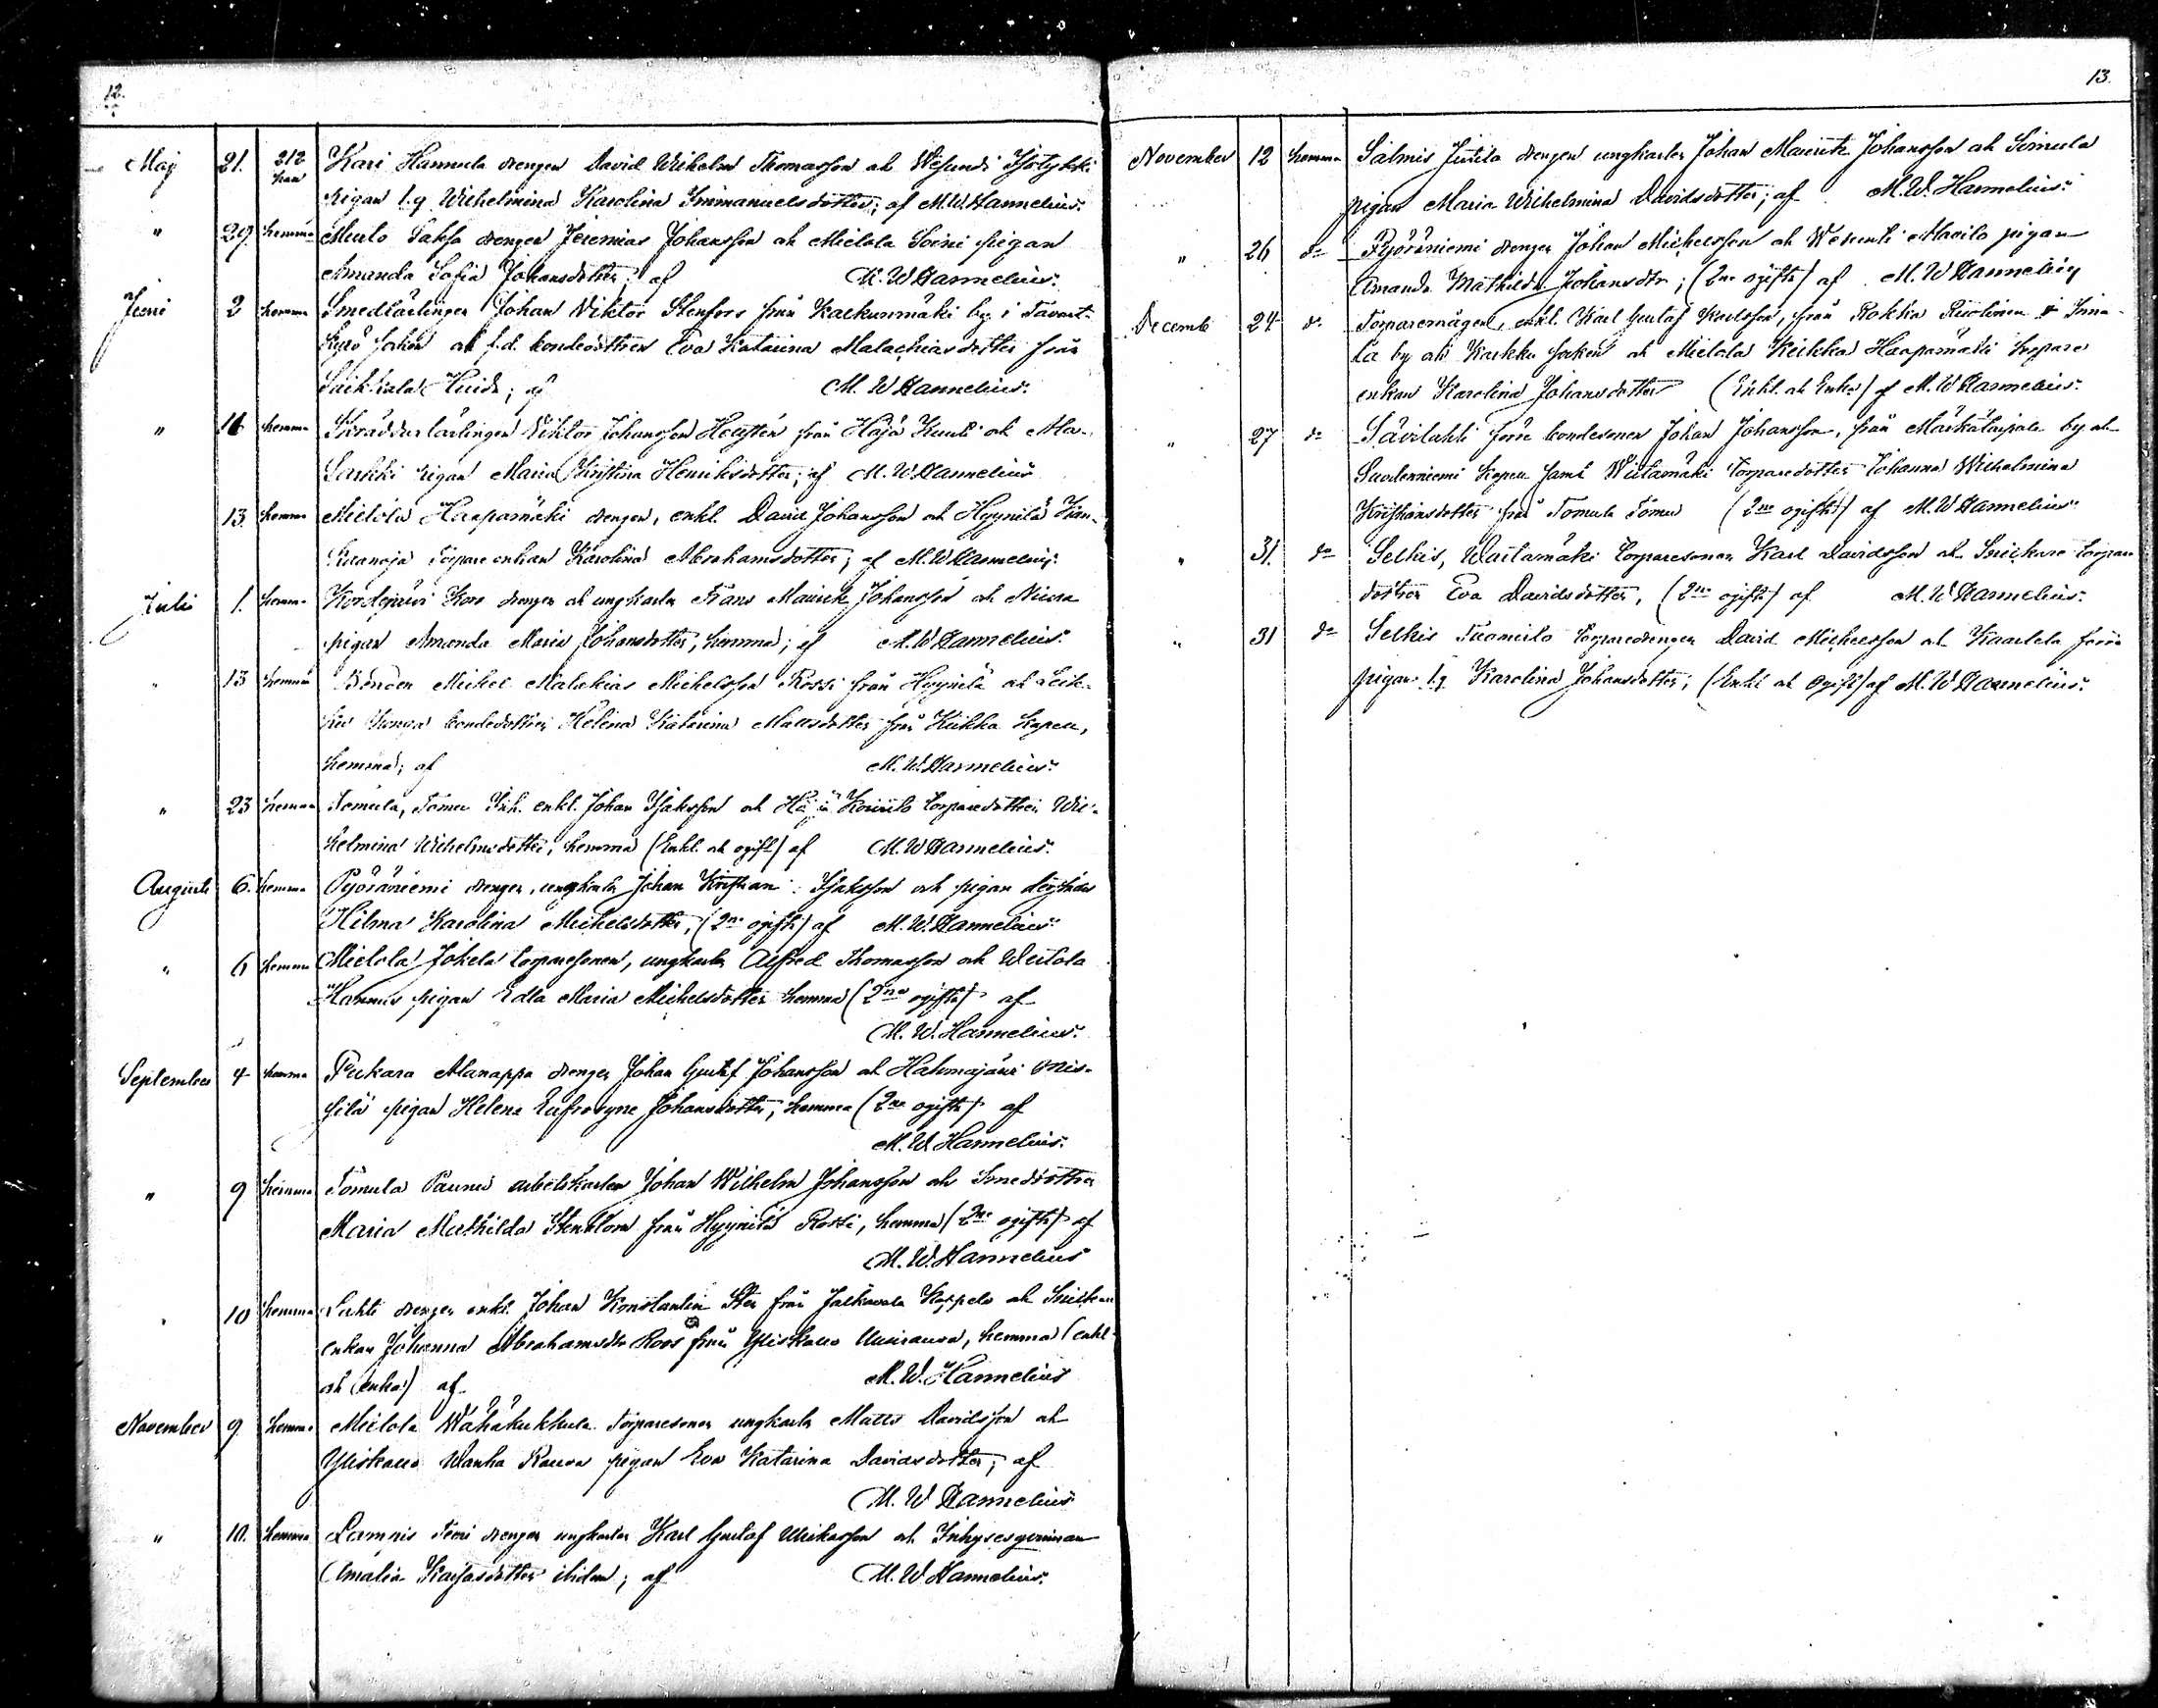 12.
Maj 21. Kari Hannula drengen David Wilhelm Thomasson och Wesunti
pigan l.q. Wilhelmina Karolina Immanuelsdotter; af M.W. Hannelius.
" 29 hemma drengen Jeremias Johansson och Mielola Soini pigan
Amanda Sofia Johansdotter; af M.W. Hannelius.
Juni 2 hemma Smedlärlingen Johan Viktor Stenfors från Kaekunmäki by i Tavast-
Kyrö socken och f.d. bondedottren Eva Katarina Malachiasdotter från
Heida; af M.W. Hannelius.
" 11 hemma Skräddarlärlingen Viktor Johansson från Häjä och Ala-
pigan Maria Kristina Henriksdotter; af M.W. Hannelius
13 hemma Mielola Haapamäki drengen, enkl. David Johansson och Hyynilä
Torpare enkan Karolina Abrahamsdotter; af M.W. Hannelius.
Juli 1. hemma Kordejärvi drengen och ungkarlen Frans Maurits Johansson och
pigan Amanda Maria Johansdotter, hemma; af M.W. Hannelius.
" 13 hemma Bonden Mickel Malakias Mickelsson Rossi från Hyynilä och
bondedottren Helena Katarina Mattsdotter från Kiikka Kapell,
hemma; af M.W. Hannelius.
" 23 hemma Tomula, Tömer Inh. enkl. Johan Isaksson och Häjä torparedottren Wil-
helmina Wilhelmsdotter, hemma (Enkl. och ogift) af M.W. Hannelius.
Augusti 6. hemma Pyöräniemi drengen, ungkarlen Johan Kristian Isaksson och pigan
Hilma Karolina Mickelsdotter, (2ne ogifta) af M.W. Hannelius.
" 6 hemma Mielola Jokela torparesonen, ungkarlen Alfred Thomasson och
Hannus pigan Edla Maria Mickelsdotter hemma (2ne ogifta) af
M.W. Hannelius.
September 4 hemma Pukara Alanappa drengen Johan Gustaf Johansson och Hahmajärvi
pigan Helena Eufrosyne Johansdotter, hemma (2ne ogifta) af
M.W. Hannelius.
" 9 hemma Tomula Paunu arbetskarlen Johan Wilhelm Johansson och Smedsdottren
Maria Mathilda Stenblom från Hyynilä Rossi, hemma (2ne ogifta) af
M.W. Hannelius
" 10 hemma Lahti drengen enkl. Johan Konstantin Sten från och
enkan Johanna Abrahamsdtr Roos från Yliskallo Uusirauva, hemma (enkl.
och enka) af M.W. Hannelius
November 9. hemma Mielola Wähäkukkula Torparesonen ungkarlen Matts Davidsson och
Yliskallo Wanha Rauva pigan Eva Katarina Davidsdotter; af
M.W. Hannelius
" 10. hemma Lamnis drengen ungkarlen Karl Gustaf och Inhysesqvinnan
Amalia ibidem; af M.W. Hannelius.
13.
November 12 hemma Salmis Jutila drengen ungkarlen Johan Maurits Johansson och Simula
pigan Maria Wilhelmina Davidsdotter; af M.W. Hannelius.
" 26 do Pyöräniemi drengen Johan Mickelsson och Wesunti Mavilo pigan
Amanda Mathilda Johansdtr; (2ne ogifta) af M.W. Hannelius
December 24 do Torparemågen, enkl. Karl Gustaf Karlsson, från Rokka
la by och Karkku socken och Mielola Keikka Haapamäki torpare
enkan Karolina Johansdotter (Enkl. och Enka) af M.W. Hannelius.
" 27 do Sävilahti förre bondesonen Johan Johansson, från by och
Suodenniemi Kapell samt torparedotter Johanna Wilhelmina
Kristiansdotter från Tomula Tömer (2ne ogifta) af M.W. Hannelius.
" 31. do Selkis, torparesonen Karl Davidsson och torpare
dottren Eva Davidsdotter, (2ne ogifta) af M.W. Hannelius.
" 31 do Selkis Tuomisto torparedrengen David Mickelsson och Kaarlela förra
pigan l.q. Karolina Johansdotter; (Enkl. och Ogift) af M.W. Hannelius.